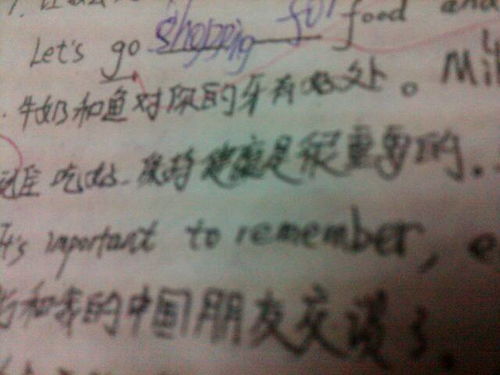 7.
Let's go shopping for food and
牛奶和鱼对你的牙有好处。 Mil
记住 吃好 保持健康是很重要的.
It's important to remember, e
和我的中国朋友交谈了.